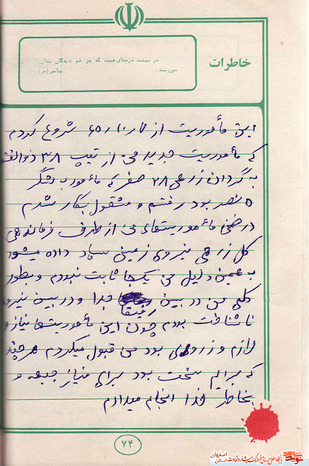 خاطرات
در بهشت درجه‌ای هست که جز غم دیدگان بدان
نمی‌رسند. پیامبر (ص)
این مأموریت از ۶۵/۱۰/ شروع کردم
که مأموریت جدید من از تیپ ۳۸ ذوالفقار
به گردان زرهی ۲۸ صفر که مأمور به لشگر
۵ نصر بود رفتم و مشغول بکار شدم
در ضمن مأموریتهای من از طرف فرماندهی
کل زرهی نیروی زمینی سپاه داده میشود
به همین دلیل من یکجا ثابت نبودم و بطور
کلی من در بین رفقا جدا و در بین نیرو
ناشناخت بودم چون این مأموریتها نیاز و
لازم و زرهی بود من قبول میکردم هرچند
که برایم سخت بود برای نیاز جبهه و
بخاطر خدا انجام میدادم
۷۴